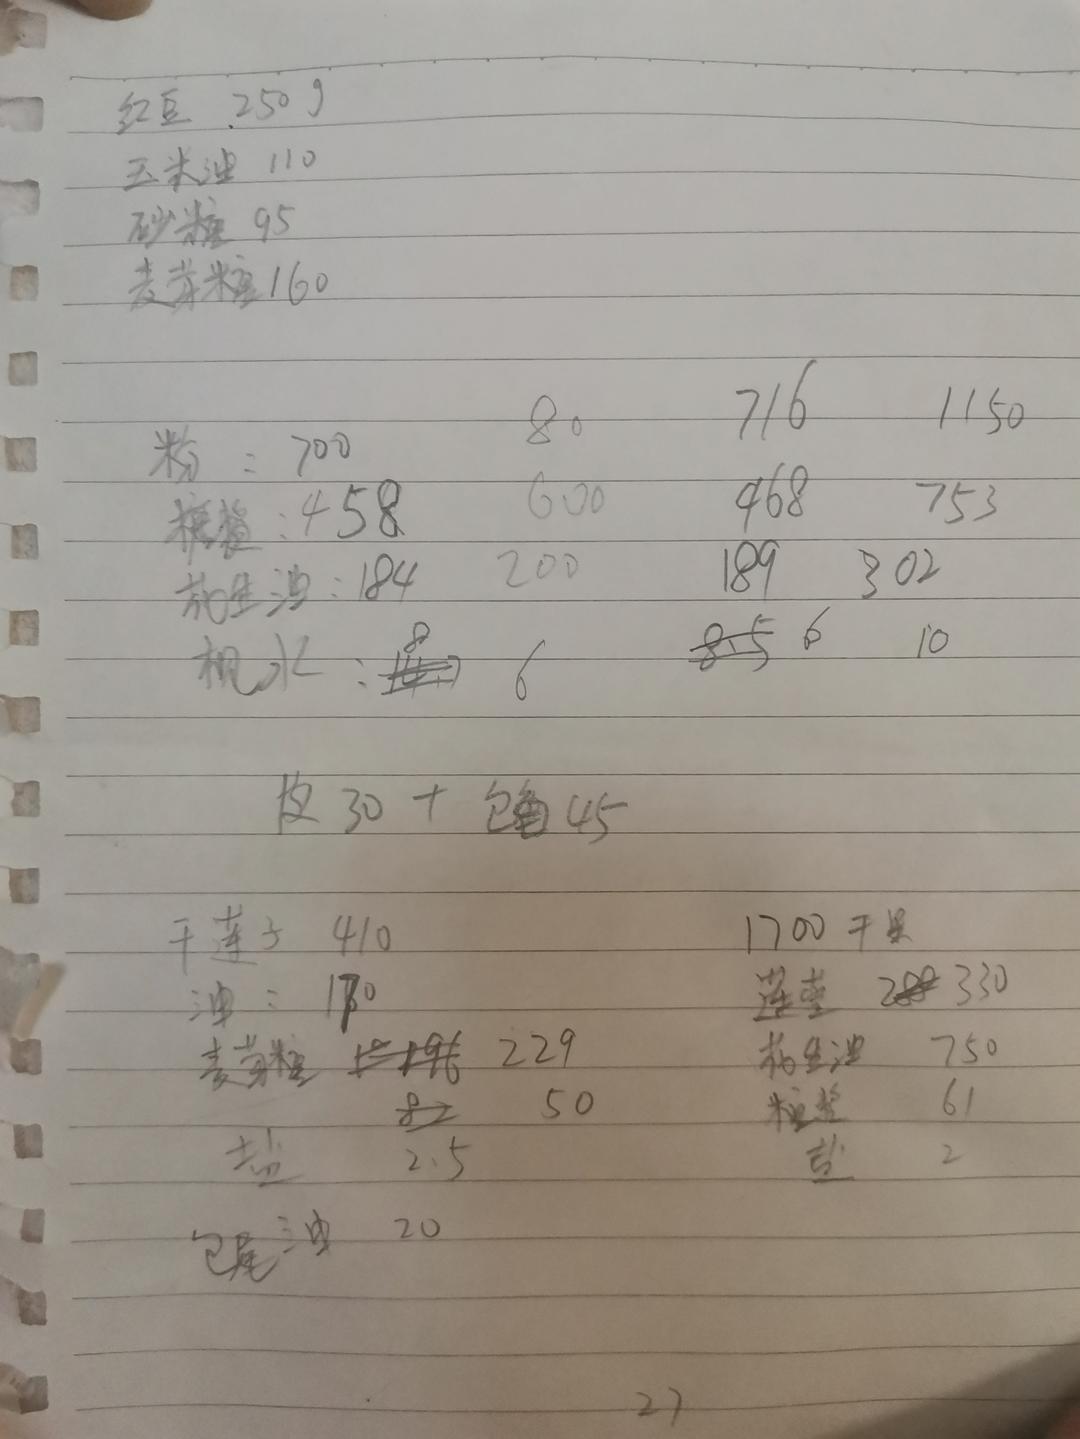 红豆 250g
玉米油 110
砂糖 95
麦芽糖 160
粉：700 80 716 1150
糖浆：458 600 468 753
花生油：184 200 189 302
枧水：8 6 8.5 6 10
皮 30 + 馅 45
干莲子 410 1700 干果
油：170 莲蓉 288 330
麦芽糖 196 229 花生油 750
82 50 糖浆 61
盐 2.5 盐 2
包尾油 20
27